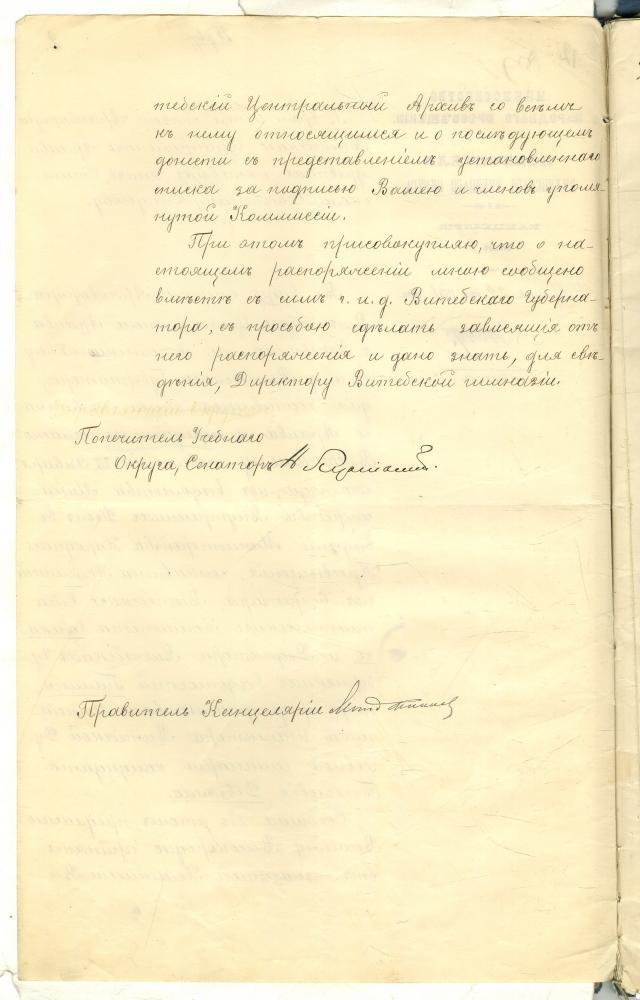 тебскій Центральный Архивъ со всѣмъ
къ нему относящимся и о послѣдующемъ
донести съ представленіемъ установленнаго
списка за подписью Вашею и членовъ упомя-
нутой Коммиссіи.
При этомъ присовокупляю, что о на-
стоящемъ распоряженіи мною сообщено
вмѣстѣ съ симъ г. и. д. Витебскаго Губерна-
тора, съ просьбою сдѣлать зависящія отъ
него распоряженія и дано знать, для свѣ-
дѣнія, Директору Витебской гимназіи.
Попечитель Учебнаго
Округа, Сенаторъ
Правитель Канцеляріи